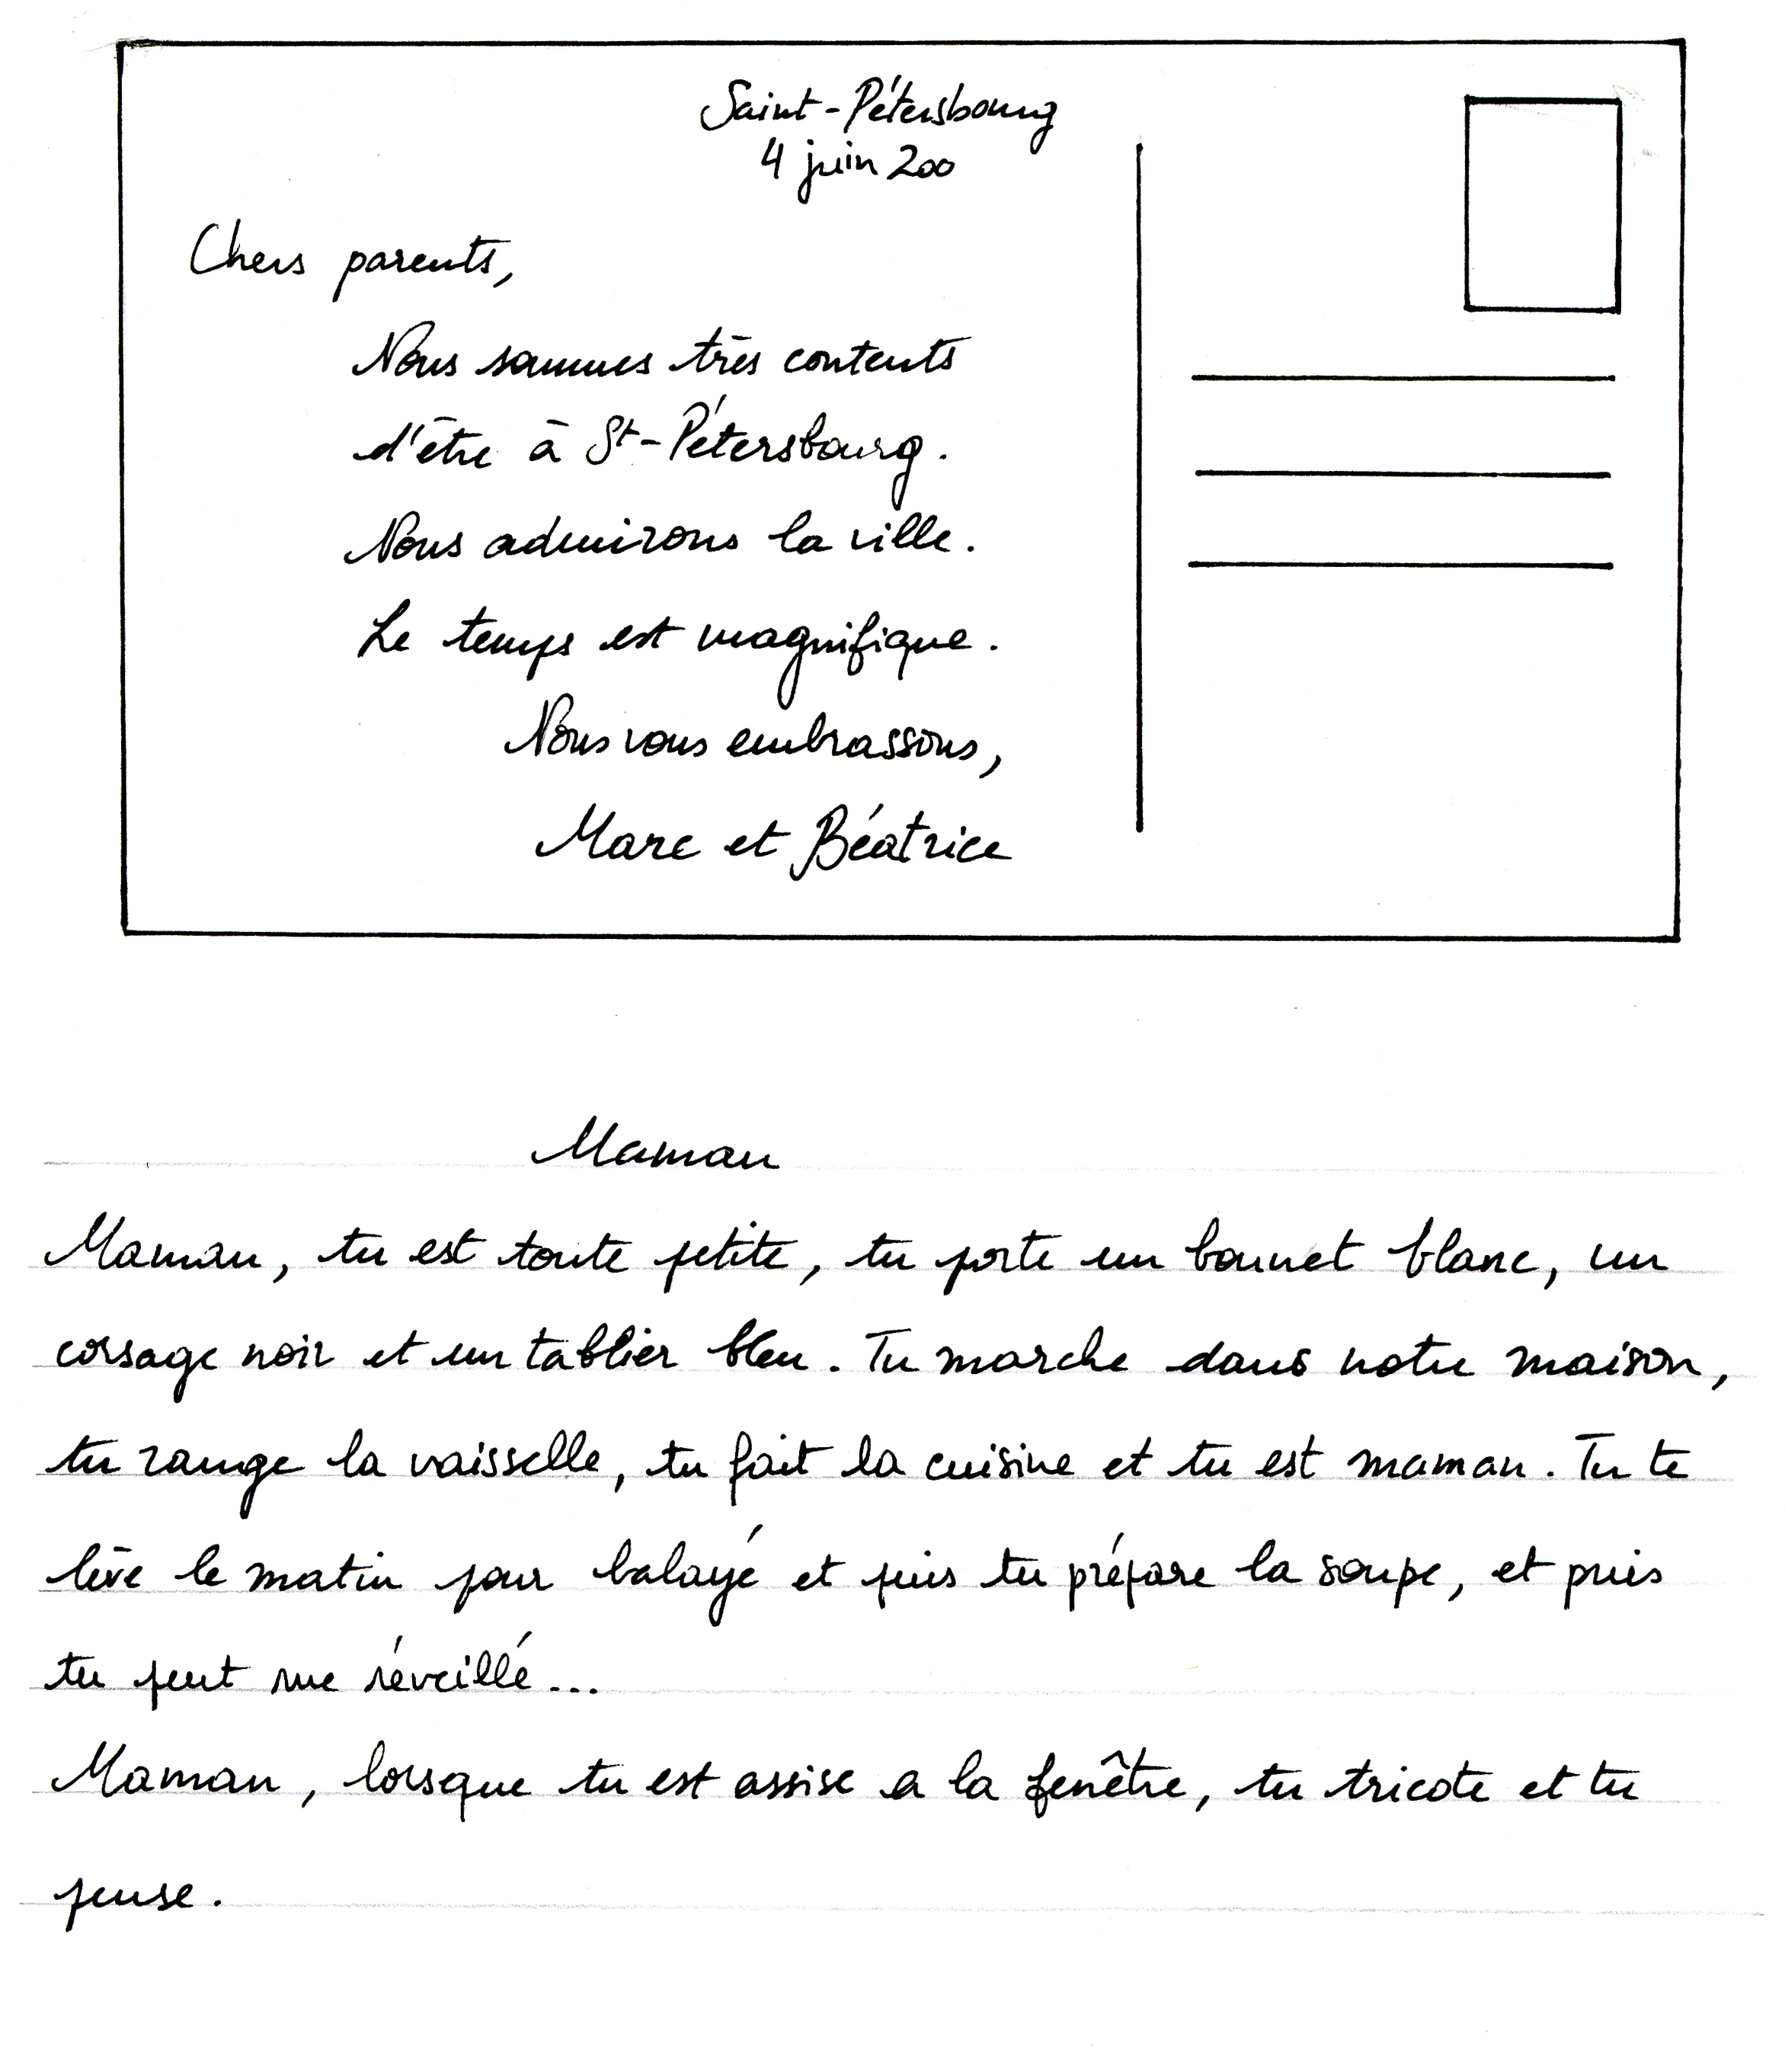 Saint-Pétersbourg
4 juin 200
Chers parents,
Nous sommes très contents
d'être à St-Pétersbourg.
Nous admirons la ville.
Le temps est magnifique.
Nous vous embrassons,
Marc et Béatrice
Maman
Maman, tu est toute petite, tu porte un bonnet blanc, un
corsage noir et un tablier bleu. Tu marche dans notre maison,
tu range la vaisselle, tu fait la cuisine et tu est maman. Tu te
lève le matin pour balayé et puis tu prépare la soupe, et puis
tu peut me réveillé...
Maman, lorsque tu est assise a la fenêtre, tu tricote et tu
pense.